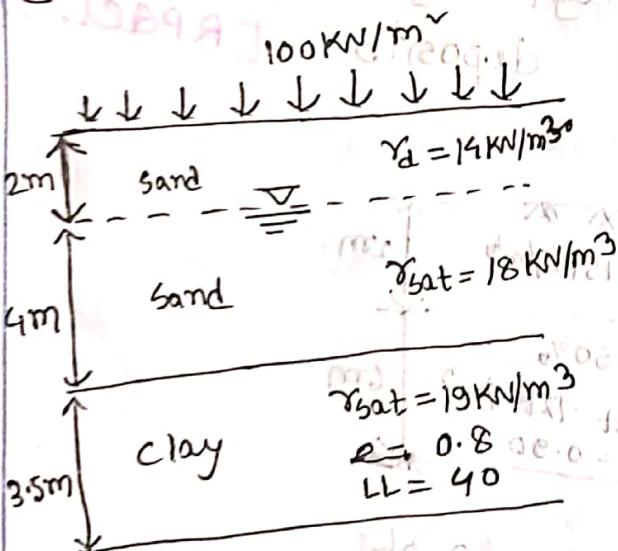 100KN/m²
2m
sand
γd = 14KN/m³
4m
sand
γsat = 18 KN/m³
3.5m
clay
γsat = 19KN/m³
e = 0.8
LL = 40